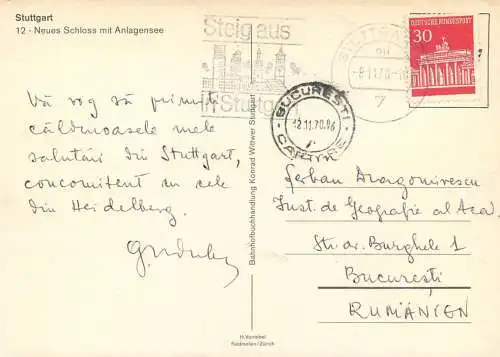 Stuttgart
12 - Neues Schloss mit Anlagensee
Steig aus
in Stuttgart
STUTTGART
-9.11.70-
7
DEUTSCHE BUNDESPOST
30
BUCUREȘTI
12.11.70.06
CARTARE
Vă rog să primiți
călduroasele mele
salutări din Stuttgart,
concomitent cu cele
din Heidelberg.
Bahnhofbuchhandlung Konrad Wittwer Stuttgart
Șerban Dragomirescu
Inst. de Geografie al Acad.
Str. dr. Burghele 1
București
RUMÄNIEN